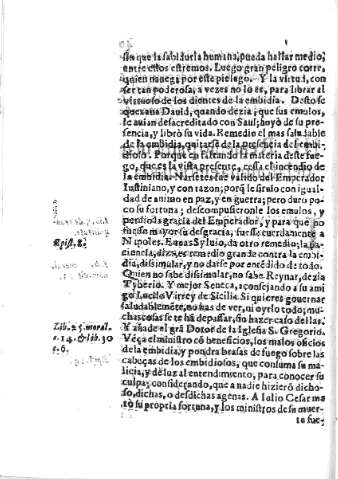 sin que la sabiduria humana, pueda hallar medio,
entre estos estremos. Luego gran peligro corre,
quien nauega por este pielago. Y la virtud, con
ser tan poderosa, a vezes no lo es, para librar al
virtuoso de los dientes de la embidia. Desto se
quexaua Dauid, quando dezia; que sus emulos,
le auian desacreditado con Saul; huyò de su pre
sencia, y librò su vida. Remedio el mas saludable
de la embidia, quitarse de la presencia del embi-
dioso. Porque en faltando la materia deste fue-
go, que es la vista presente, cessa el incendio de
la embidia. Narsetes fue valido del Emperador
Iustiniano, y con razon; porq̃ le siruio con igual-
dad de animo en paz, y en guerra; pero durò po-
co su fortuna; descompusieronle los emulos, y
perdiendo la gracia del Emperador, y para que no
fuesse mayor su desgracia; fuesse cuerdamente a
Napoles. Eneas Syluio, da otro remedio; la pa-
Epist. 82.
ciencia, dize, es remedio grande contra la embi-
dia, disimular, y no darse por encedido de todo.
Quien no sabe disimular, no sabe Reynar, dezia
Tyberio. Y mejor Seneca, aconsejando a su ami
go Lucilo Virrey de Sicilia. Si quieres gouernar
saludablemẽte, no has de ver, ni oyrlo todo; mu-
chas cosas se te hã de passar, sin hazer caso dellas.
Lib. 25. moral.
c. 14. & lib. 30
c. 6.
Y añade el grã Dotor de la Iglesia S. Gregorio.
Vẽça el ministro cõ beneficios, los malos oficios
de la embidia, y pondra brasas de fuego sobre las
cabeças de los embidiosos, que consuma su ma-
licia, y dè luz al entendimiento, para conocer su
culpa; considerando, que a nadie hizierõ dicho-
so, dichas, o desdichas agenas. A Iulio Cesar ma
tò su propria fortuna, y los ministros de su muer-
te fue-